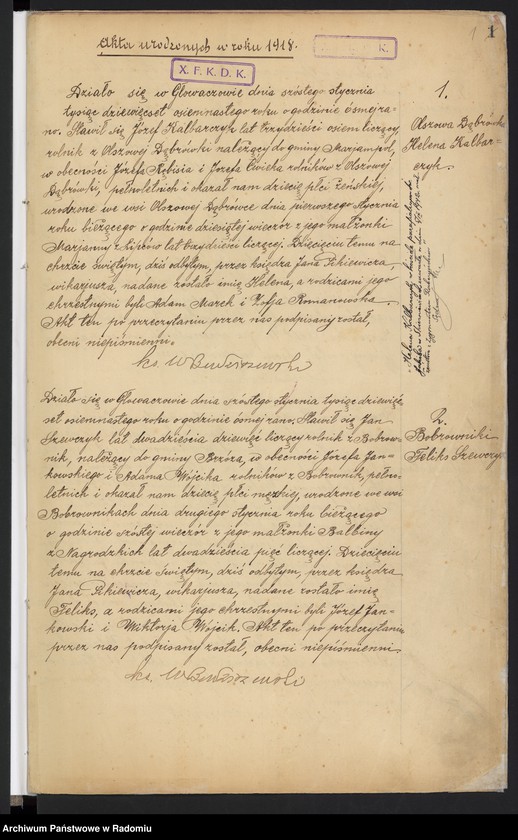 1
Akta urodzonych w roku 1918.
X. F. K. D. K.
Działo się w Głowaczowie dnia szóstego stycznia
tysiąc dziewięćset osiemnastego roku o godzinie ósmej ra-
no. Stawił się Józef Kalbarczyk lat trzydzieści osiem liczący,
rolnik z Olszowej Dąbrówki należący do gminy Marjampol,
w obecności Józefa Rębisia i Józefa Ćwieka rolników z Olszowej
Dąbrówki, pełnoletnich i okazał nam dziecię płci żeńskiej,
urodzone we wsi Olszowej Dąbrówce dnia pierwszego stycznia
roku bieżącego o godzinie dziesiątej wieczór z jego małżonki
Marjanny z lat trzydzieści liczącej. Dziecięciu temu na
chrzcie świętym, dziś odbytym, przez księdza Jana Pikiewicza,
wikarjusza, nadane zostało imię Helena, a rodzicami jego
chrzestnymi byli Adam Marek i Zofja Romanowska.
Akt ten po przeczytaniu przez nas podpisany został,
obecni niepiśmienni.
ks.
1.
Olszowa Dąbrówka
Helena Kalbar-
czyk.
Działo się w Głowaczowie dnia szóstego stycznia tysiąc dziewięć-
set osiemnastego roku o godzinie ósmej rano. Stawił się Jan
Szewczyk lat dwadzieścia dziewięć liczący rolnik z Bobrow-
nik, należący do gminy Brzóza, w obecności Józefa Jan-
kowskiego i Adama Wójcika rolników z Bobrownik, pełno-
letnich i okazał nam dziecię płci męzkiej, urodzone we wsi
Bobrownikach dnia drugiego stycznia roku bieżącego
o godzinie szóstej wieczór z jego małżonki Balbiny
z Nagrodzkich lat dwadzieścia pięć liczącej. Dziecięciu
temu na chrzcie świętym, dziś odbytym, przez księdza
Jana Pikiewicza, wikarjusza, nadane zostało imię
Feliks, a rodzicami jego chrzestnymi byli Józef Jan-
kowski i Wiktorja Wójcik. Akt ten po przeczytaniu
przez nas podpisany został, obecni niepiśmienni.
ks.
2.
Bobrowniki
Feliks Szewczyk
Archiwum Państwowe w Radomiu